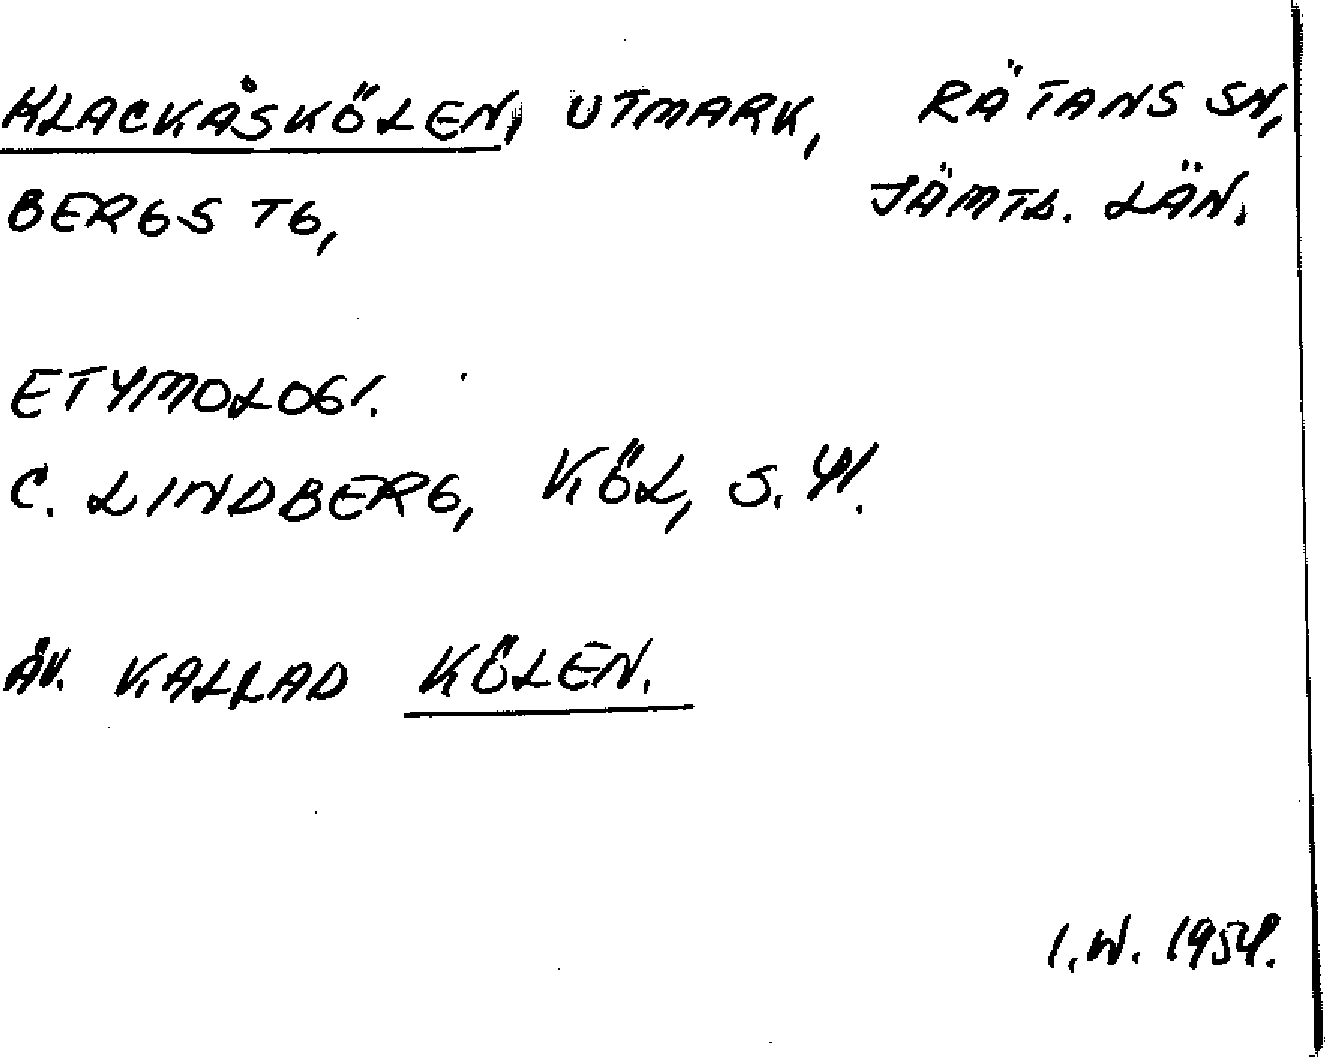 KLACKÅSKÖLEN, UTMARK, RÄTANS SN,
BERGS TG, JÄMTL. LÄN.
ETYMOLOGI.
C. LINDBERG, KÖL, S. 41.
ÄV. KALLAD KÖLEN.
I.W. 1954.